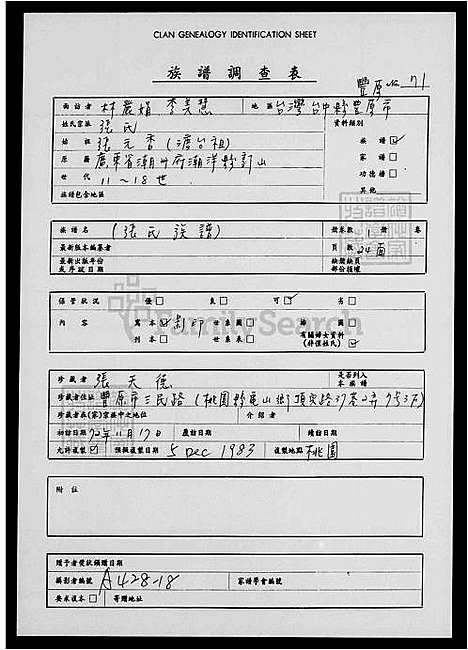 CLAN GENEALOGY IDENTIFICATION SHEET
族譜調查表
豐原 No 71
面訪者 林麗娟 李美慧 地區 台灣台中縣豐原市
姓氏宗派 張氏 資料類別
始祖 張元香(渡台祖) 族譜
原籍 廣東省潮州府潮洋縣 山 家譜
世代 11~18世 功德譜
族譜包含地區 其他
族譜名 (張氏族譜) 冊卷數 1 冊 卷
最新版本編纂者 頁數 24面
最新出版年份 缺開缺頁
或序跋日期 部份損壞
保管狀況 優 良 可 劣
內容 寫本 影印 世系圖 繪圖
刊本 世系表 有關婦女資料
(祥僅姓氏)
珍藏者 張天德 是否列入
本族譜
珍藏者住址 豐原市三民路(桃園縣龜山鄉頂興路37巷2弄753万)
珍藏者在(家)宗族中之地位 介紹者
初訪日期 72年11月17日 覆訪日期 續訪日期
允許複製 預擬複製日期 5 Dec 1983 複製地點 桃園
附註
贈予者獎狀頒贈日期
攝影者編號 A428-18 家譜學會編號
要求複本 寄贈地址
FamilySearch